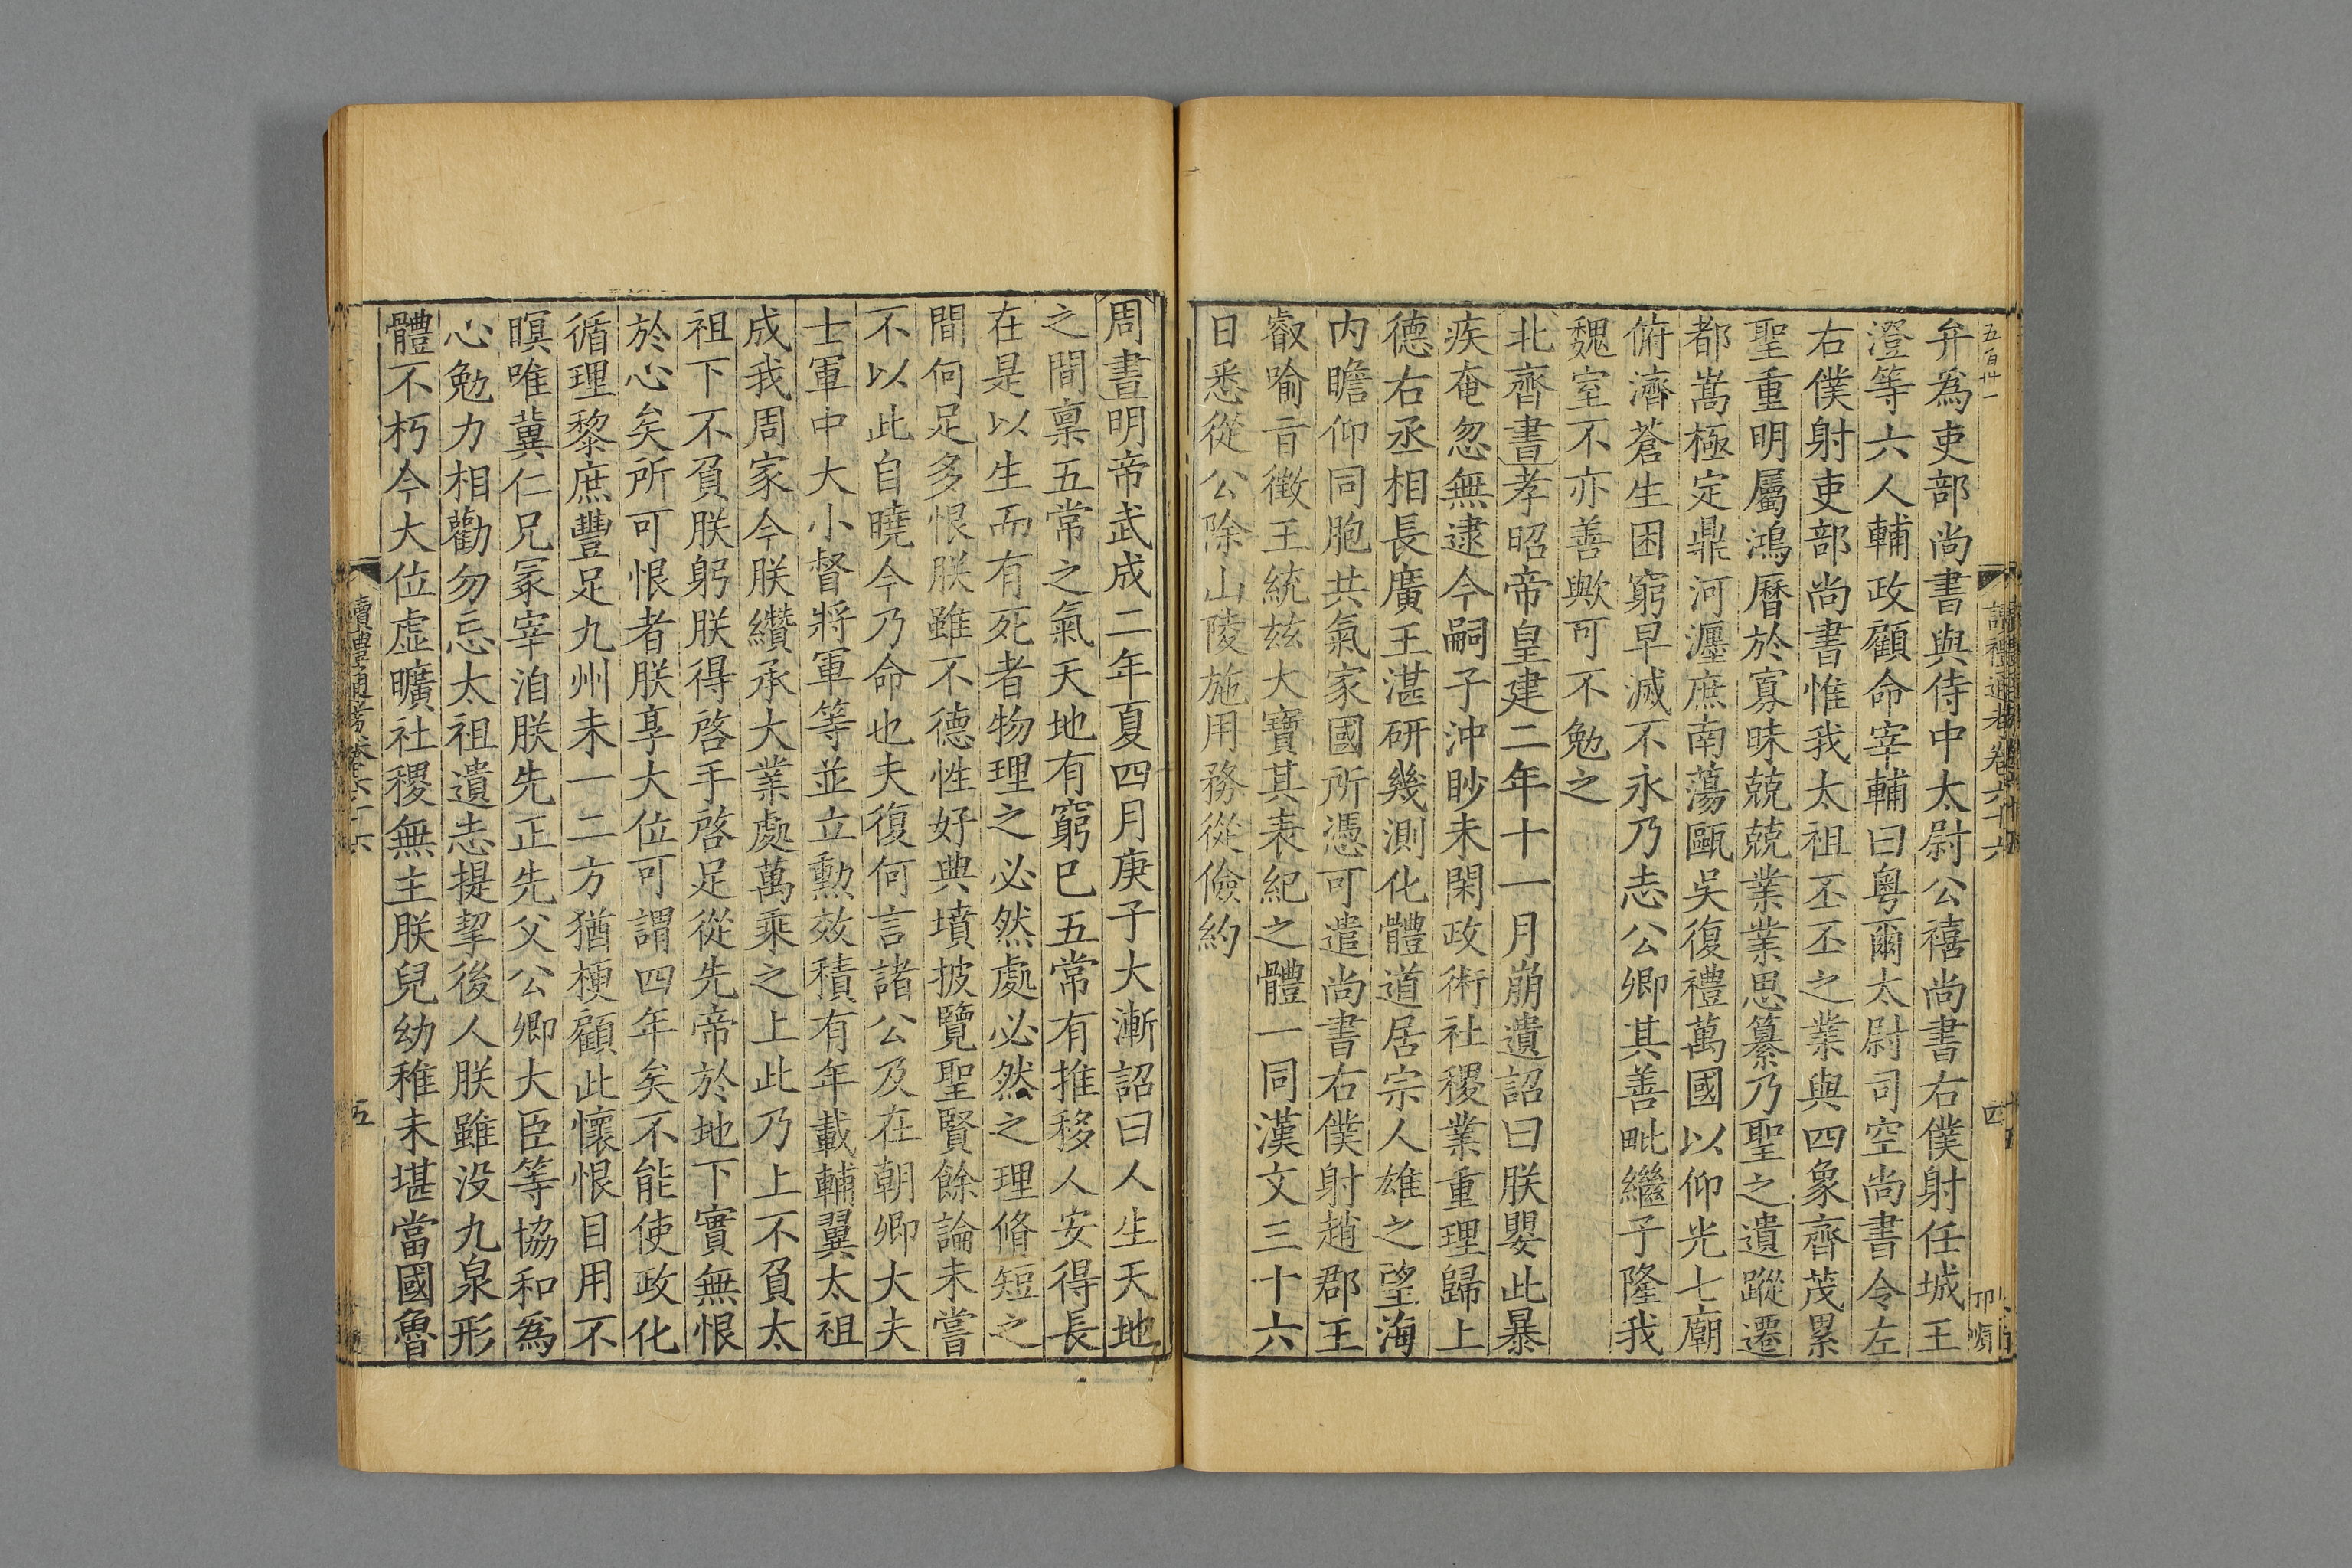 五百卅一
讀禮通考卷六十六
四
弁爲吏部尚書與侍中太尉公禧尚書右僕射任城王
澄等六人輔政顧命宰輔曰粤爾太尉司空尚書令左
右僕射吏部尚書惟我太祖丕丕之業與四象齊茂累
聖重明屬鴻曆於寡昧兢兢業業思纂乃聖之遺蹤遷
都嵩極定鼎河瀍庶南蕩甌吳復禮萬國以仰光七廟
俯濟蒼生困窮早滅不永乃志公卿其善毗繼子隆我
魏室不亦善歟可不勉之
北齊書孝昭帝皇建二年十一月崩遺詔曰朕嬰此暴
疾奄忽無逮今嗣子沖眇未閑政術社稷業重理歸上
德右丞相長廣王湛研幾測化體道居宗人雄之望海
内瞻仰同胞共氣家國所憑可遣尚書右僕射趙郡王
叡喻㫖徵王統兹大寶其䘮紀之體一同漢文三十六
日悉從公除山陵施用務從儉約
周書明帝武成二年夏四月庚子大漸詔曰人生天地
之間稟五常之氣天地有窮已五常有推移人安得長
在是以生而有死者物理之必然處必然之理脩短之
間何足多恨朕雖不德性好典墳披覽聖賢餘論未嘗
不以此自曉今乃命也夫復何言諸公及在朝卿大夫
士軍中大小督將軍等並立勲效積有年載輔翼太祖
成我周家今朕纘承大業處萬乘之上此乃上不負太
祖下不負朕躬朕得啓手啓足從先帝於地下實無恨
於心矣所可恨者朕享大位可謂四年矣不能使政化
循理黎庶豐足九州未一二方猶梗顧此懷恨目用不
瞑唯冀仁兄冡宰洎朕先正先父公卿大臣等協和爲
心勉力相勸勿忘太祖遺志提挈後人朕雖没九泉形
體不朽今大位虛曠社稷無主朕兒幼稚未堪當國魯
讀禮通考卷六十六
五